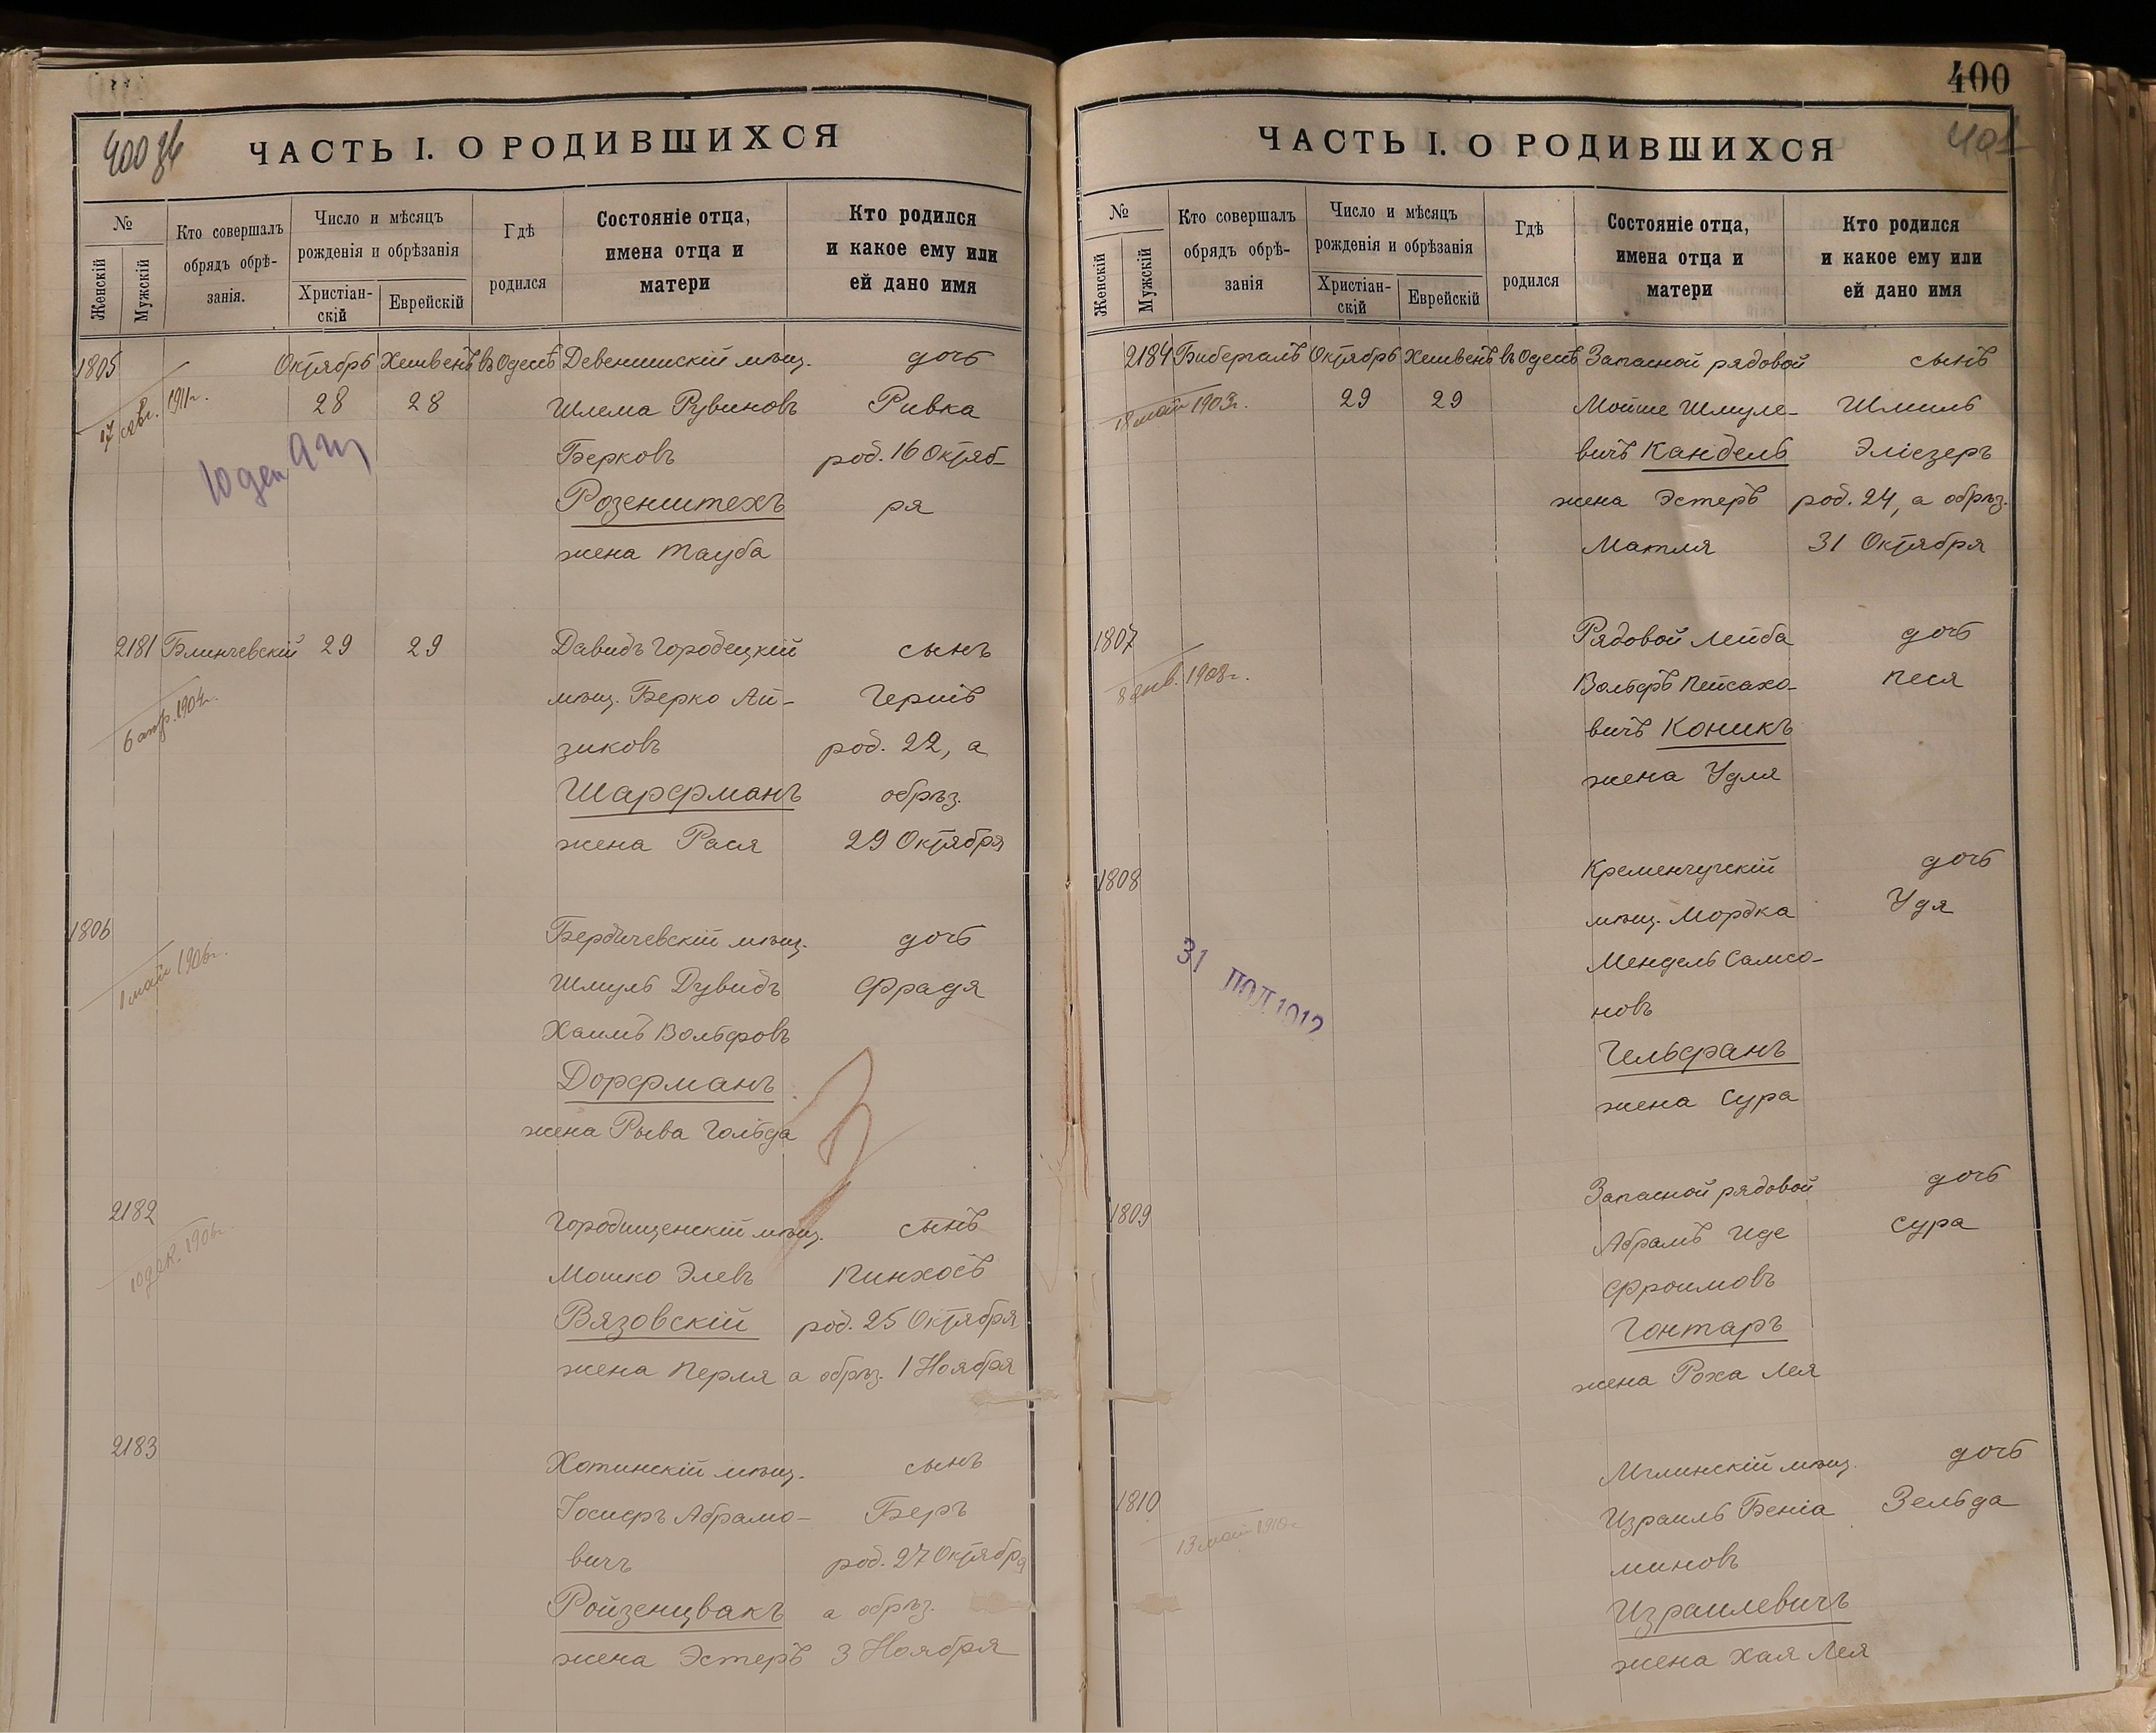 400 об
ЧАСТЬ I. О РОДИВШИХСЯ
№
Женскій
Мужскій
Кто совершалъ
обрядъ обрѣ-
занія.
Число и мѣсяцъ
рожденія и обрѣзанія
Христіан-
скій
Еврейскій
Гдѣ
родился
Состояніе отца,
имена отца и
матери
Кто родился
и какое ему или
ей дано имя
1805 Октябрь Хешвенъ въ Одессѣ Девенишскій мѣщ. дочь
1911г. 28 28 Шлема Рувиновъ Ривка
Берковъ род. 16 Октяб-
Розенштехъ ря
жена Тауба
2181 Блинчевскій 29 29 Давидъ Городецкій сынъ
мѣщ. Берко Ай- Гершъ
6 апр. 1904г. зиковъ род. 22, а
Шарфманъ обрѣз.
жена Рася 29 Октября
1806 Бердичевскій мѣщ. дочь
1 май 1906г. Шмуль Дувидъ Фрадя
Хаимъ Вольфовъ
Дорфманъ
жена Рыва Гольда
2182 Городищенскій мѣщ. сынъ
10 дек. 1906г. Мошко Элевъ Пинхосъ
Вязовскій род. 25 Октября
жена Перля а обрѣз. 1 Ноября
2183 Хотинскій мѣщ. сынъ
Іосифъ Абрамо- Беръ
вичъ род. 27 Октября
Ройзенцвакъ а обрѣз.
жена Эстеръ 3 Ноября
400
401
ЧАСТЬ I. О РОДИВШИХСЯ
№
Женскій
Мужскій
Кто совершалъ
обрядъ обрѣ-
занія
Число и мѣсяцъ
рожденія и обрѣзанія
Христіан-
скій
Еврейскій
Гдѣ
родился
Состояніе отца,
имена отца и
матери
Кто родился
и какое ему или
ей дано имя
2184 Бибергалъ Октябрь Хешвенъ въ Одессѣ Запасной рядовой сынъ
18 май 1903г. 29 29 Мойше Шмуле- Шмиль
вичъ Кандель Эліезеръ
жена Эстеръ род. 24, а обрѣз.
Матля 31 Октября
1807 Рядовой Лейба дочь
8 янв. 1908г. Вольфъ Пейсахо- Песя
вичъ Коникъ
жена Удля
1808 Кременчугскій дочь
мѣщ. Мордка Удя
31 1912 Мендель Самсо-
новъ
Гельфанъ
жена Сура
1809 Запасной рядовой дочь
Абрамъ Иде Сура
Фроимовъ
Гонтаръ
жена Роха Лея
1810 Мглинскій мѣщ. дочь
13 май 1910г. Израиль Беніа Зельда
миновъ
Израилевичъ
жена Хая Лея